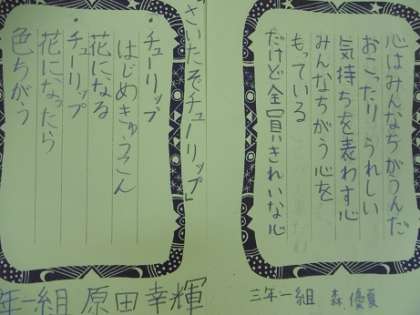 心はみんなちがうんだ
おこったり、うれしい
気持ちを表わす心
みんなちがう心を
もっている
だけど全員きれいな心
三年一組 森 優夏
「さいたぞチューリップ」
チューリップ
はじめきゅうこん
花になる
チューリップ
花になったら
色ちがう
年一組 原田幸輝